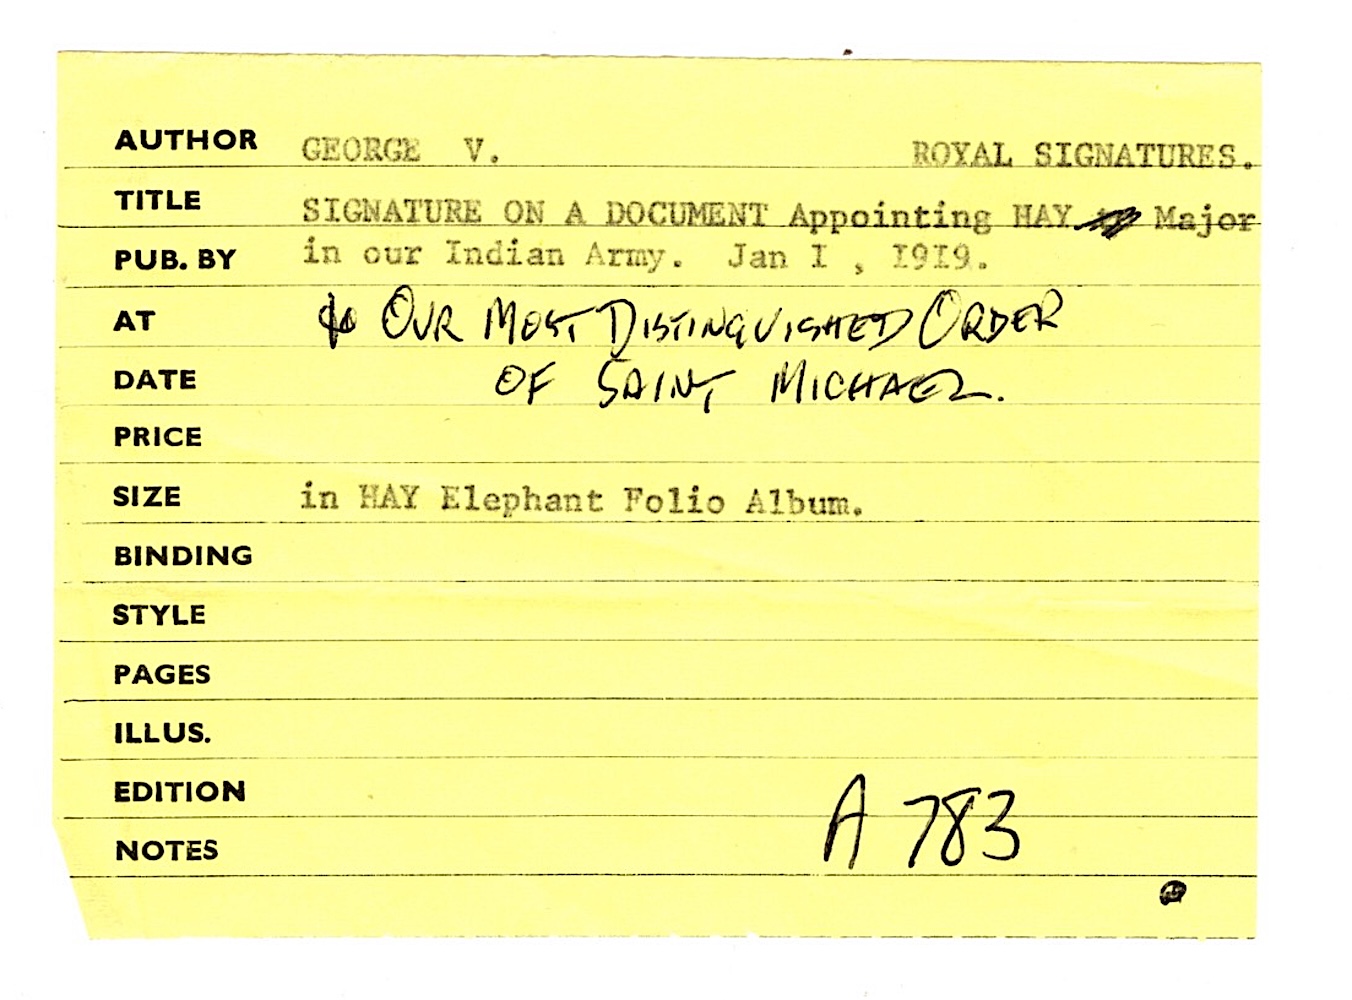 AUTHOR GEORGE V. ROYAL SIGNATURES.
TITLE SIGNATURE ON A DOCUMENT Appointing HAY Major
PUB. BY in our Indian Army. Jan I , I9I9.
AT to OUR MOST DISTINGUISHED ORDER
DATE OF SAINT MICHAEL.
PRICE
SIZE in HAY Elephant Folio Album.
BINDING
STYLE
PAGES
ILLUS.
EDITION
NOTES A 783